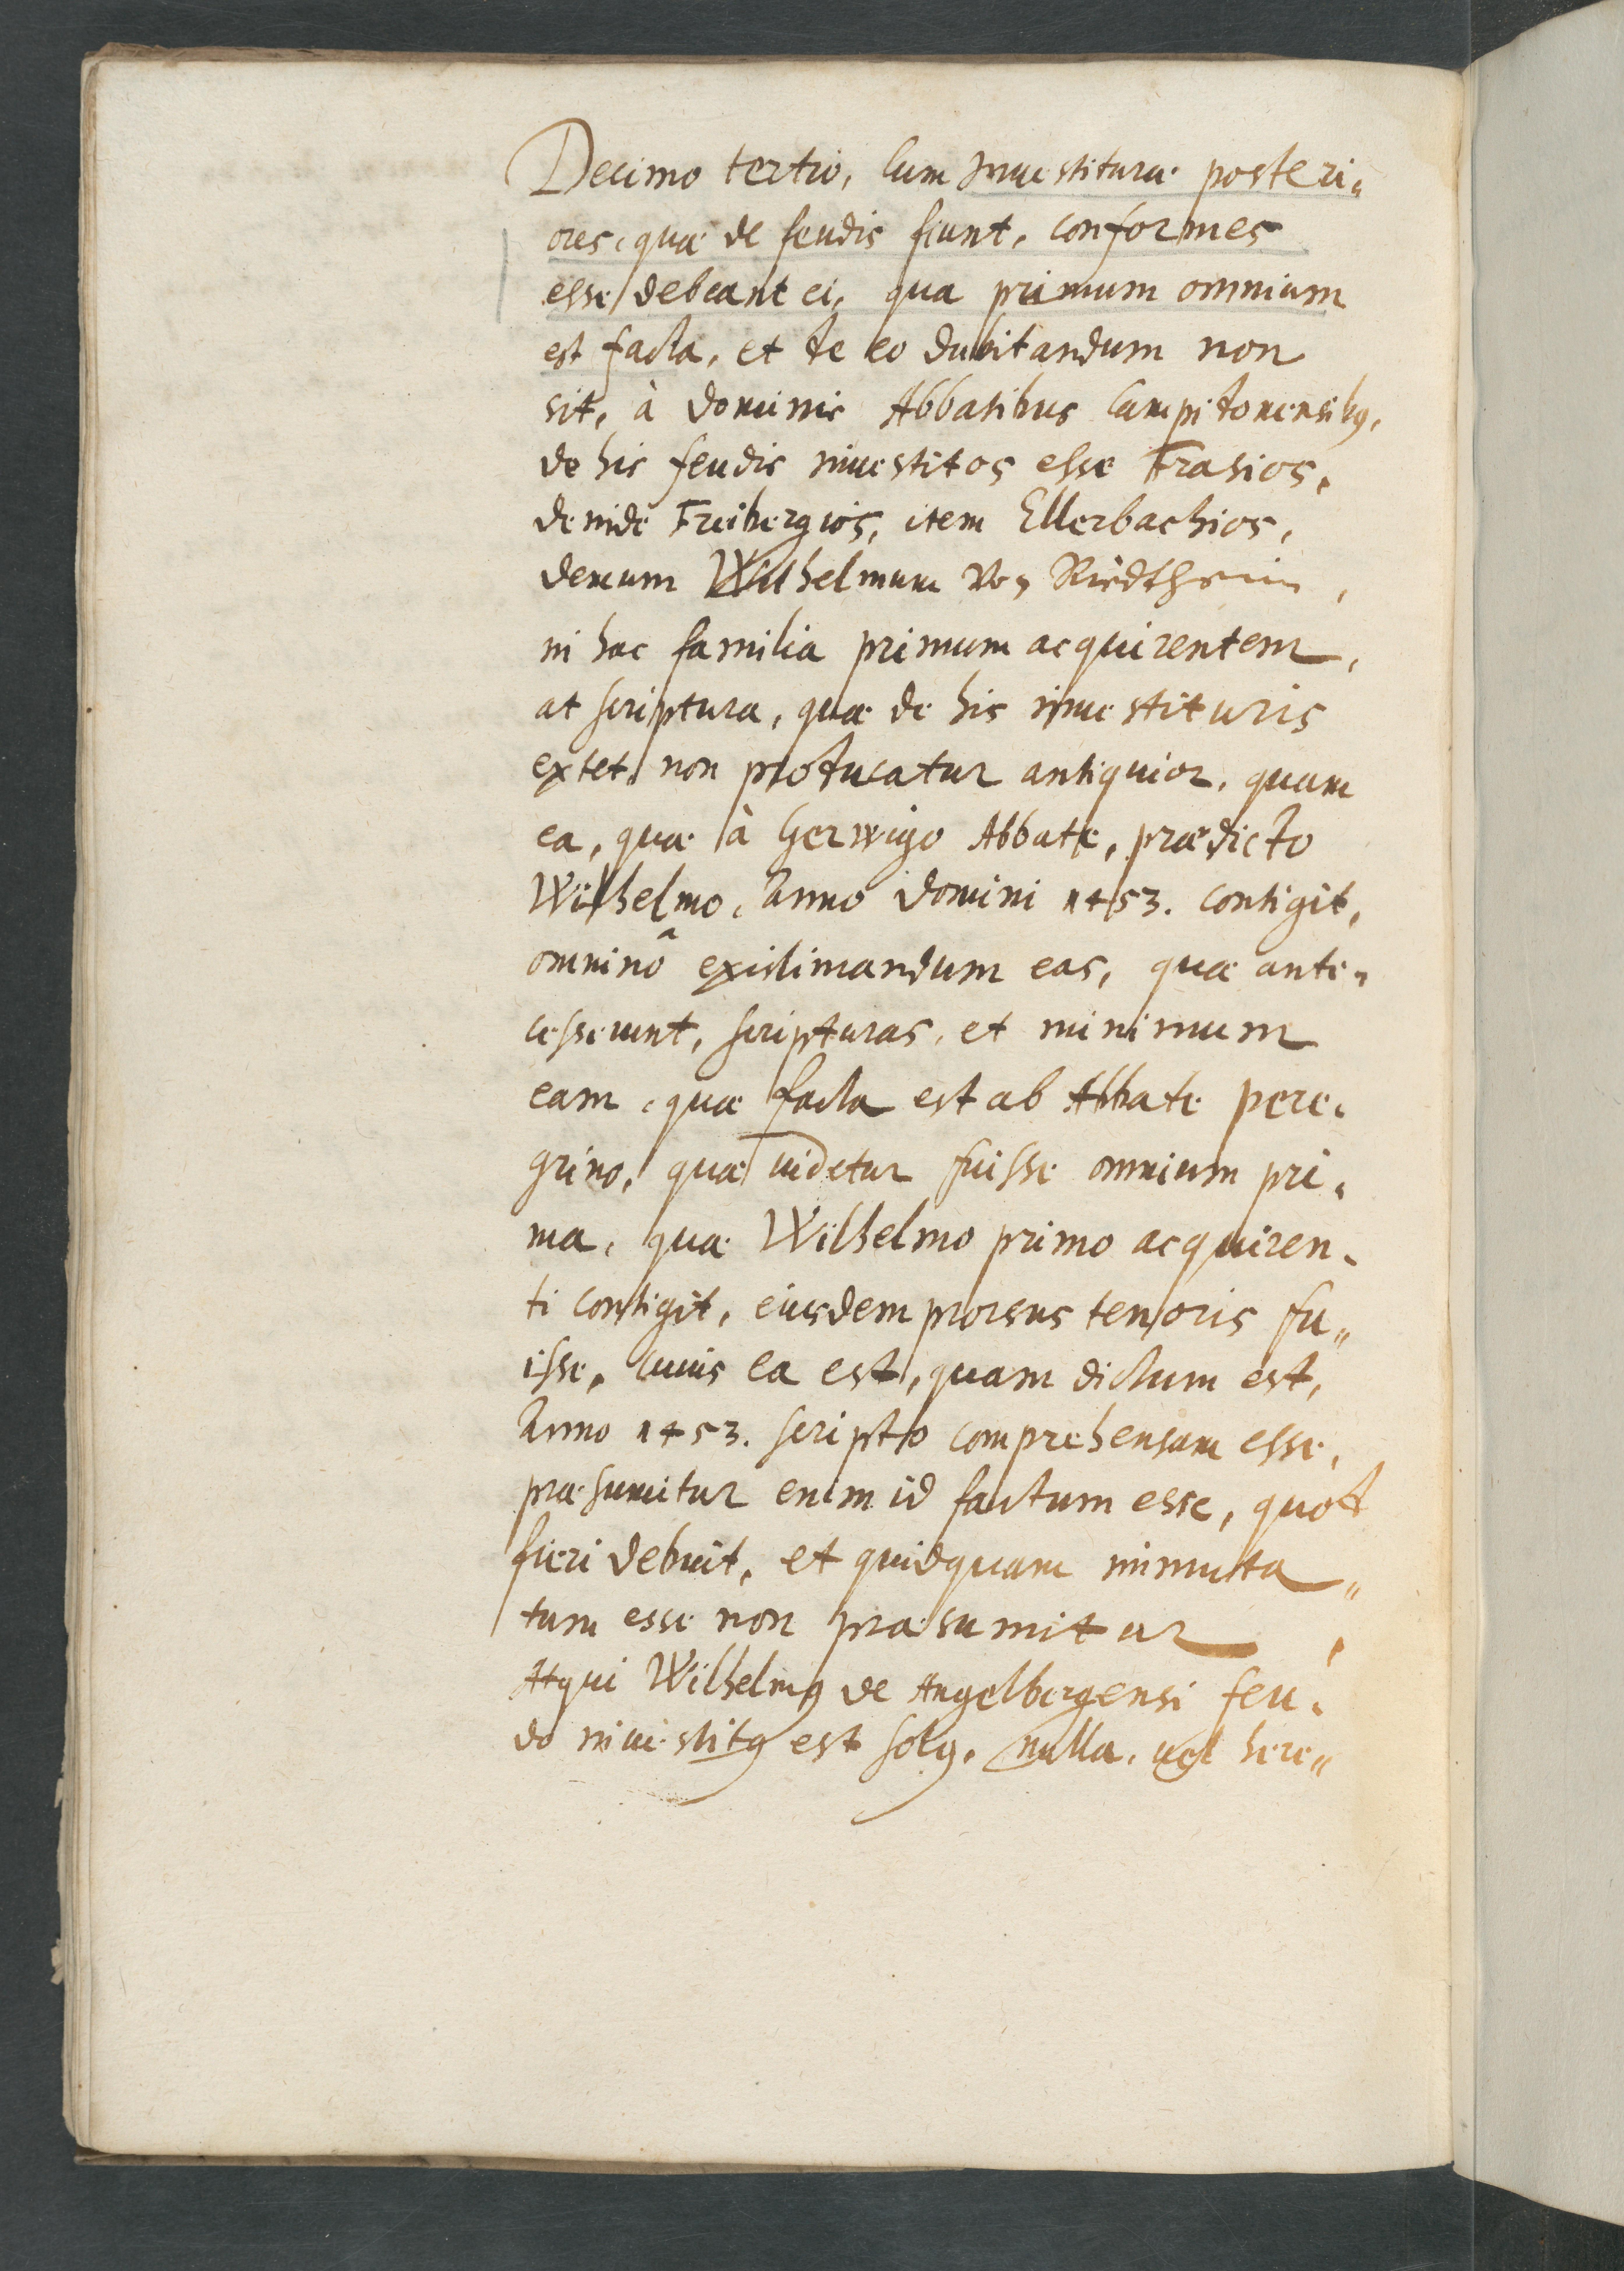 Decimo tertio, Cum Inuestituræ posteri„
ores, quæ de feudis fiunt, conformes
esse debeant ei, qua primum omnium
est facta, et de eo dubitandum non
sit, à dominis Abbatibus Campitonensibꝰ,
de his feudis inuestitos esse Frasios,
deinde Freibergios, item Ellerbachios,
demum Wilhelmum Von Riedtheim,
in hac familia primum acquirentem,
at scriptura, quæ de his inuestituris
extet, non producatur antiquior, quam
ea, quæ à Gerwigo Abbate, prædicto
Wilhelmo, Anno domini 1453. contigit,
omninò existimandum eas, quæ ante„
cesserunt, scripturas, et minimum
eam, quæ facta est ab Abbate Pere„
grino, quæ videtur fuisse omnium pri„
ma, quæ Wilhelmo primo acquiren„
ti contigit, eiusdem prorsus tenoris fu„
isse, cuius ea est, quam dictum est,
Anno 1453. scripto comprehensam esse,
præsumitur enim id factum esse, quod
fieri debuit, et quidquam immuta„
tum esse non præsumitur,
Atqui Wilhelmꝰ de Angelbergensi feu„
do inuestitꝰ est solꝰ, nulla, uel here„